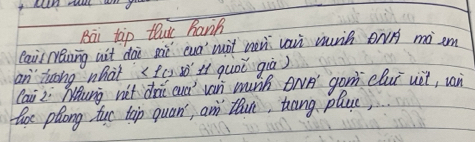 Bài tập thực hành
Câu 1: Những nét đặc sắc của một nền văn minh ĐNA mà em
ấn tượng nhất quốc gia)
Câu 2: Những nét đặc của văn minh ĐNA gồm chữ viết, văn
học phong tục tập quán, ẩm thực, trang phục,...